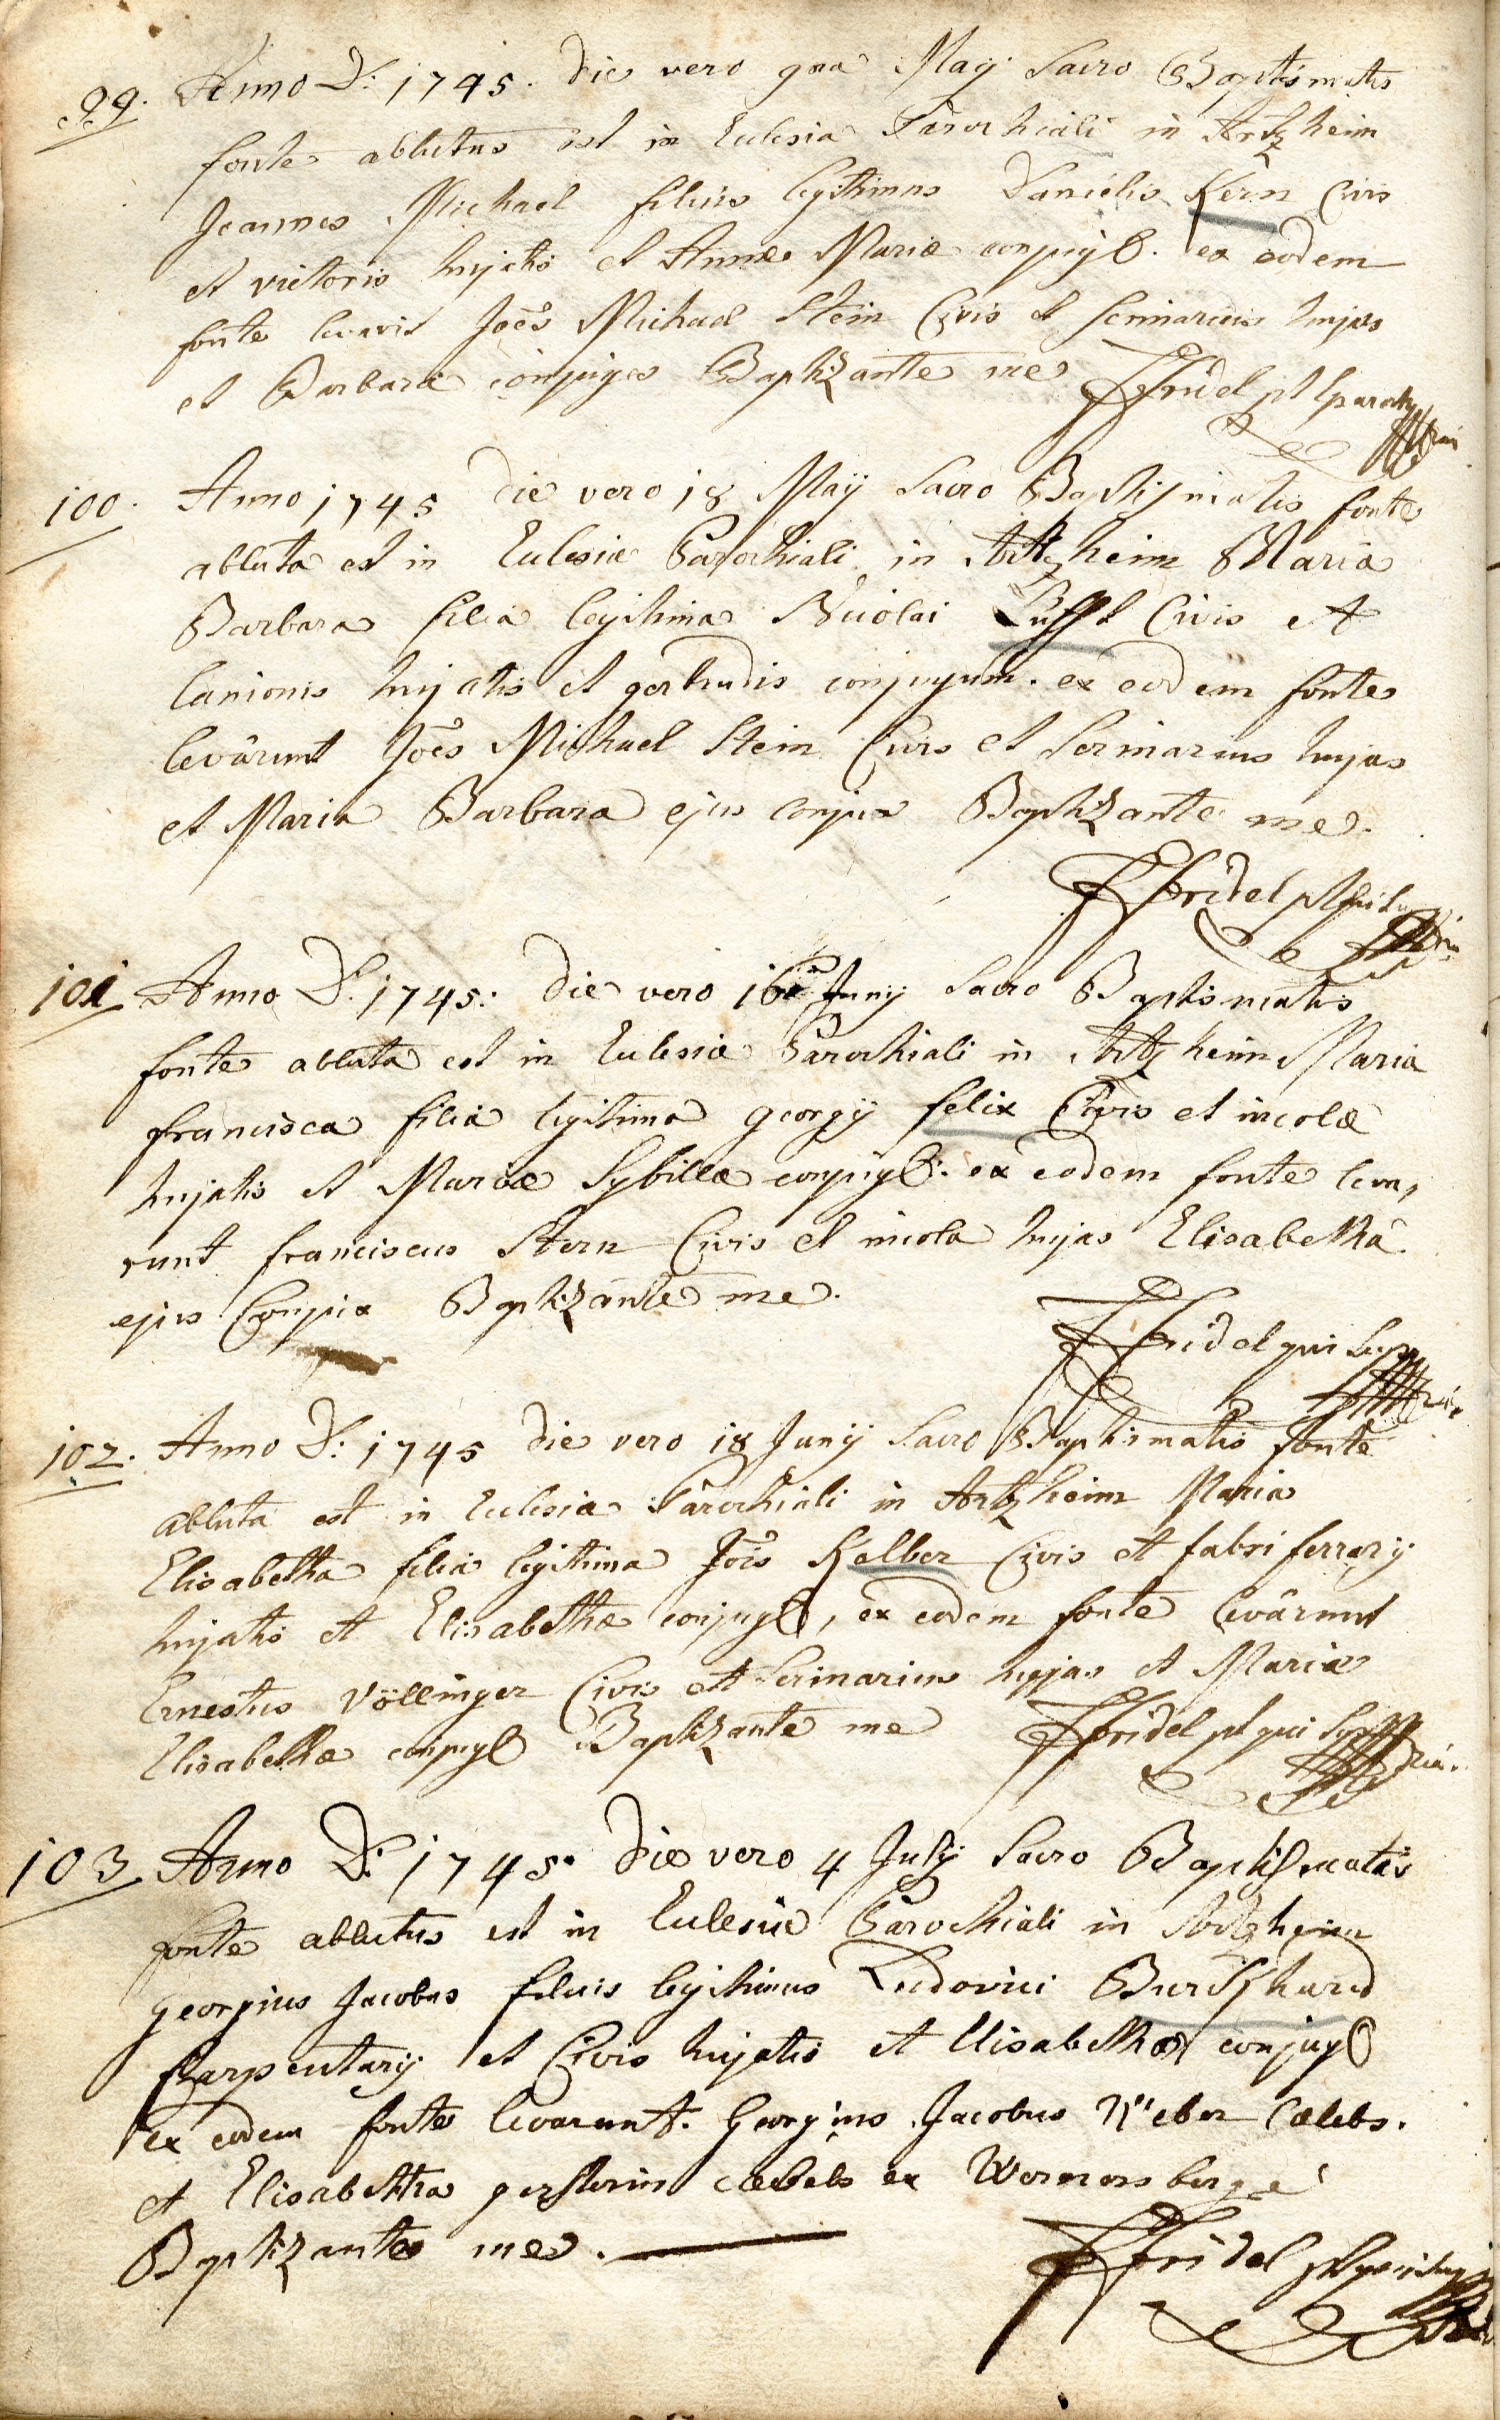 99. Anno D: 1745. die vero 9na Maÿ Sacro Baptismatis
fonte ablutus est in Eclesia Parochiali in Artzheim
Joannes Michael filius legitimus Danielis Kern Civis
et vietoris hujatis et Annæ Mariæ conjug. ex eodem
fonte levavit Joës Michael Stein Civis et scrinarius hujas
et Barbara conjuges Baptizante me FFridel pt parochus
100. Anno 1745 die vero 18 Maÿ Sacro Baptismatis fonte
abluta est in Eclesia Parochiali in Artzheim Maria
Barbara filia legitima Nicolai Lufft Civis et
lanionis hujatis et gertrudis conjugum. ex eodem fonte
levârunt Joës Michael Stein Civis et Scrinarius hujas
et Maria Barbara ejus conjux Baptizante me.
FFridel pt
101 Anno D. 1745: die vero 16 Junÿ Sacro Baptismatis
fonte abluta est in Eclesia Parochiali in Artzheim Maria
francisca filia legitima georgÿ felix Civis et incolæ
hujatis et Mariæ Sybillæ conjug: ex eodem fonte leva,
runt franciscus Stern Civis et incola hujas Elisabetha
ejus Conjux Baptizante me.
FFridel qui supra
102. Anno D: 1745 die vero 18 Junÿ Sacro Baptismatis fonte
abluta est in Eclesia Parochiali in Artzheim Maria
Elisabetha filia legitima Jöis Kelber Civis et fabri ferrarÿ
hujatis et Elisabethæ conjug, ex eodem fonte levârunt
Ernestus Völlinger Civis et Scrinarius hujas et Maria
Elisabetha conjug Baptizante me FFridel pt qui supra
103 Anno D: 1745. Die vero 4 Julÿ Sacro Baptismatis
fonte ablutus est in Eclesia Parochiali in Artzheim
georgius Jacobus filius legitimus Ludovici Burckhard
Carpentarÿ et Civis hujatis et Elisabethæ conjug
ex eodem fonte levarunt. Georgius Jacobus Weber Cælebs.
et Elisabetha cælebs ex Wormersberge
Baptizante me.
FFridel pt qui supra